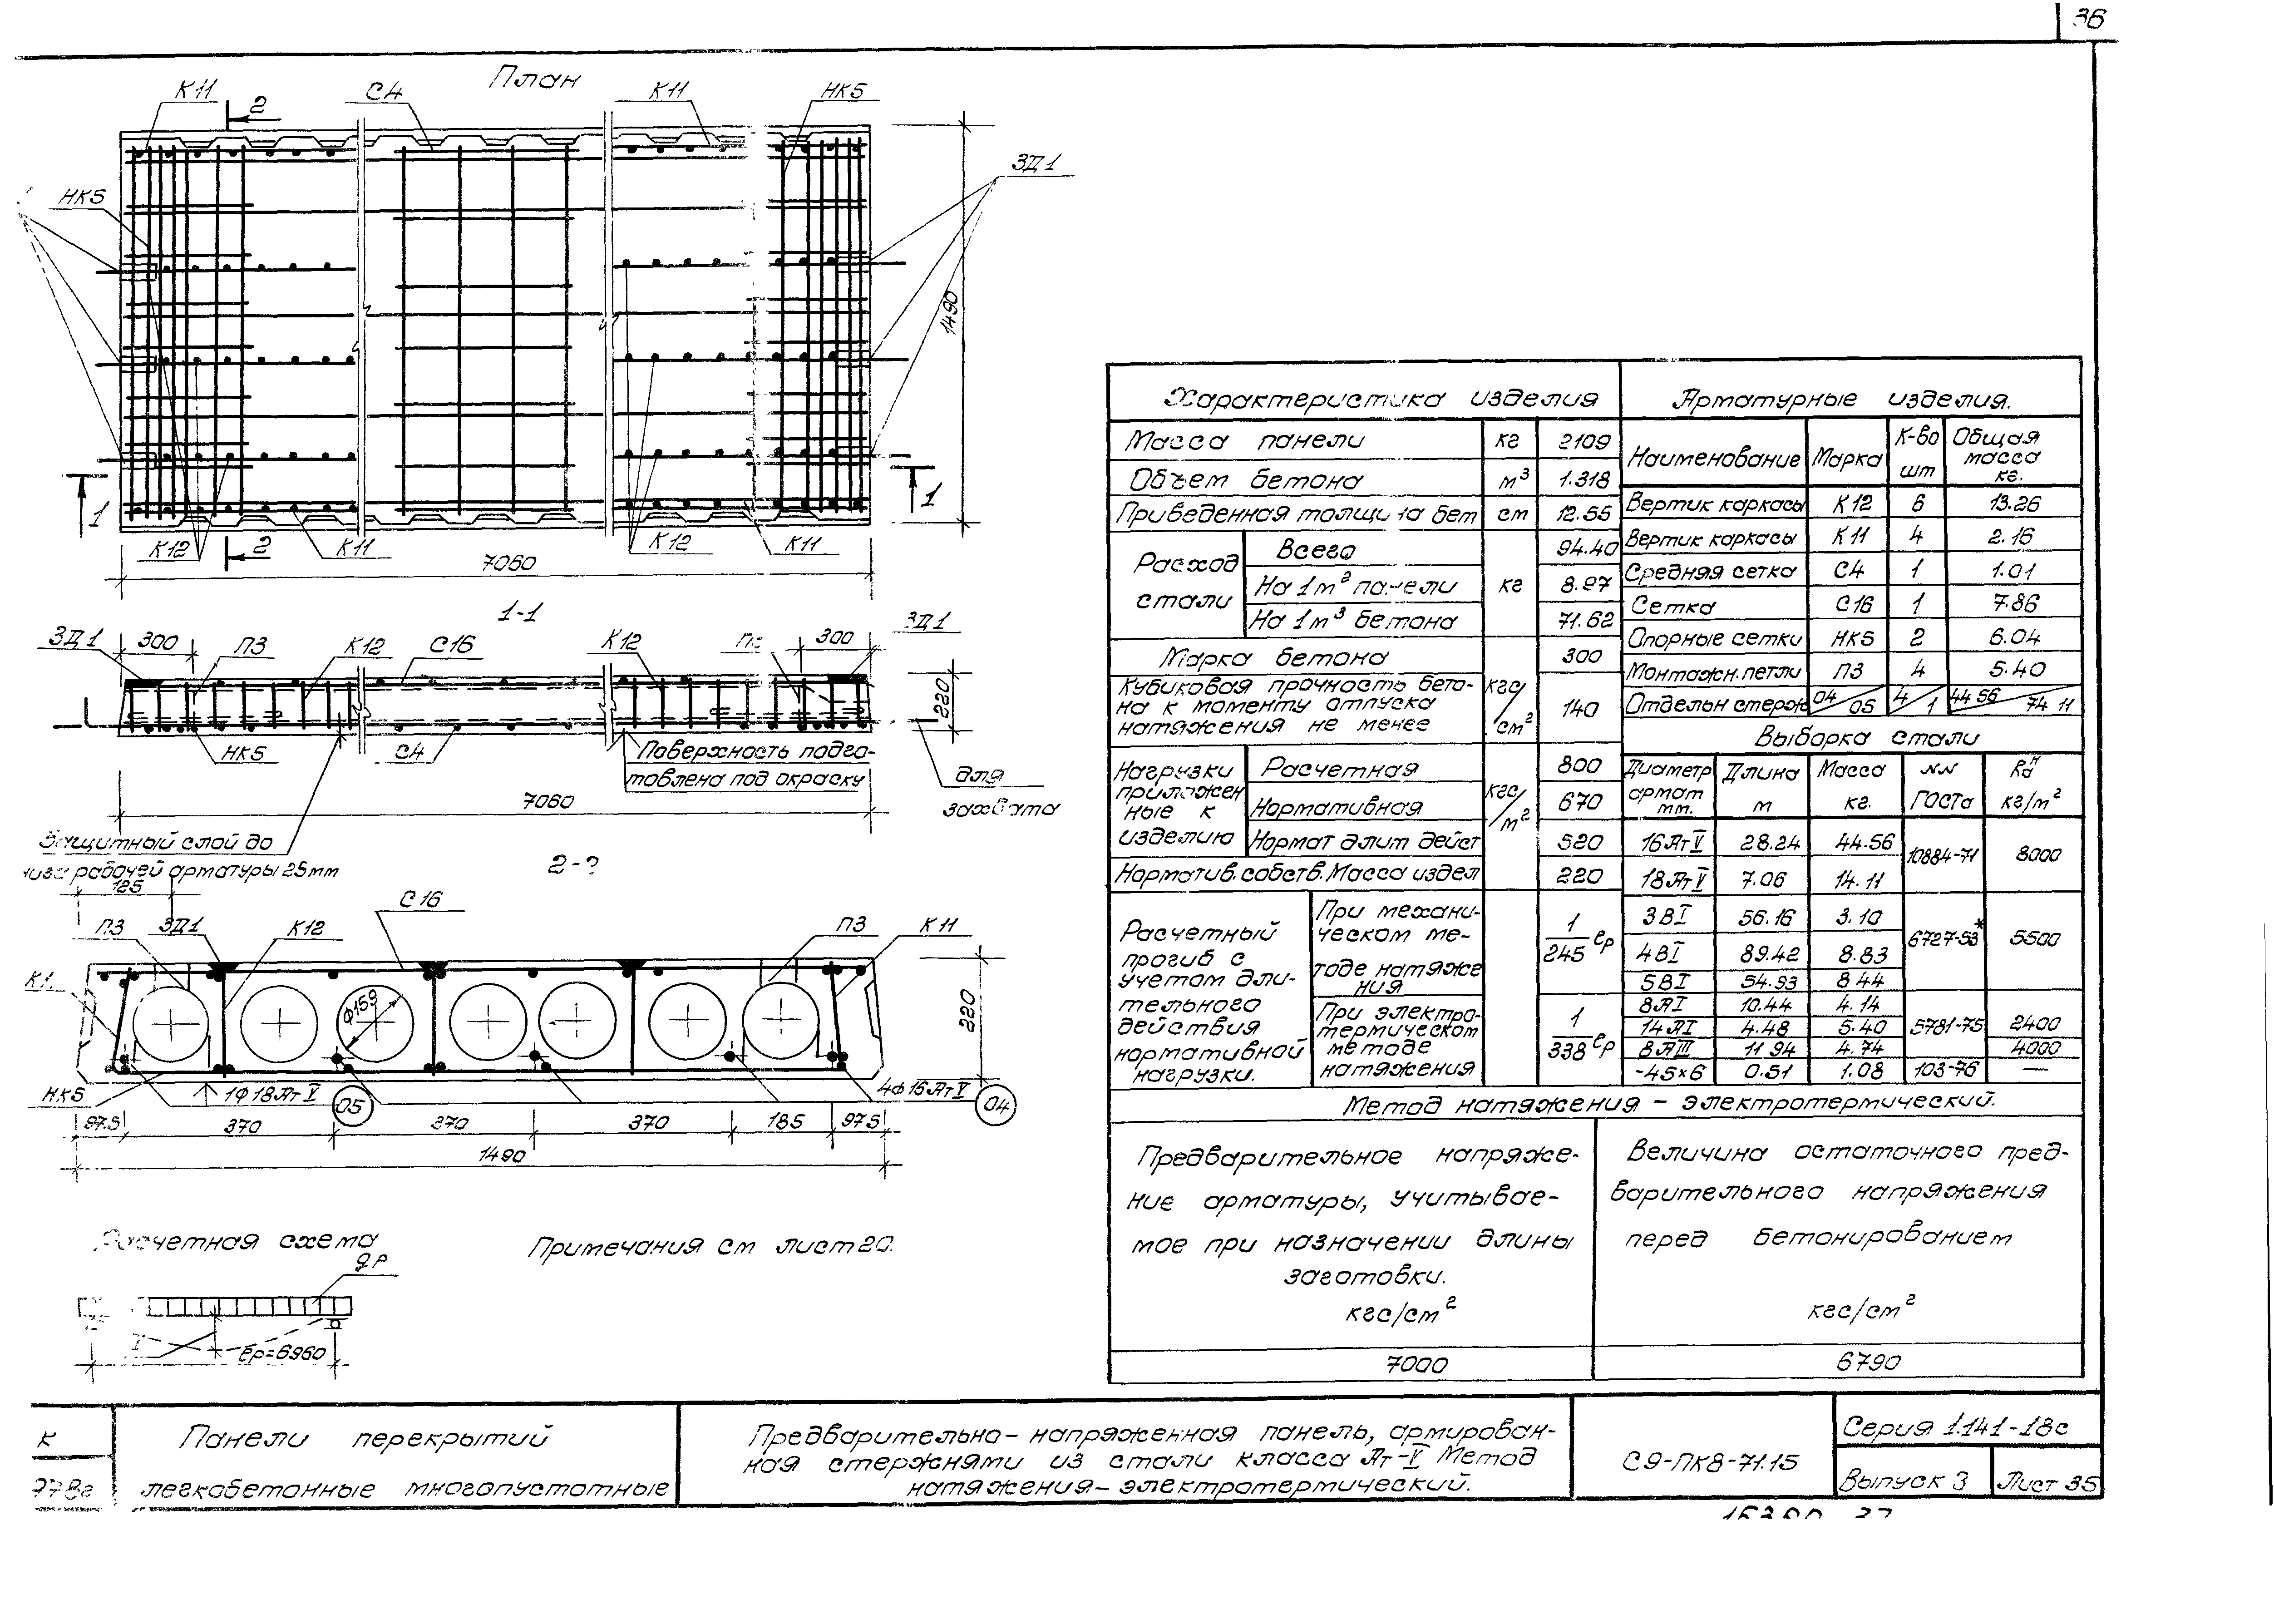 36
План
К11
2
С4
К11
НК5
ЗД1
НК5
1490
1
1
К12
2
К11
К12
К11
7060
1-1
ЗД1
300
П3
К12
С16
К12
300
ЗД1
220
НК5
С4
Поверхность подго-
товлена под окраску
для
7060
Защитный слой до
низа рабочей арматуры 25мм
125
2-2
С16
П3
ЗД1
К12
П3
К11
ф159
220
НК5
1ф18Ат V
05
4ф16Ат V
04
97.5
370
370
370
185
97.5
1490
Расчетная схема
Примечания см лист 20.
gр
ℓр=6960
Характеристика изделия
Масса панели кг 2109
Объем бетона м³ 1.318
Приведенная толщина бет см 12.55
Расход стали кг
Всего 94.40
На 1м² панели 8.97
На 1м³ бетона 71.62
Марка бетона 300
Кубиковая прочность бето-
на к моменту отпуска
натяжения не менее
кгс/см² 140
Нагрузки
приложен
ные к
изделию
кгс/м²
Расчетная 800
Нормативная 670
Нормат длит дейст 520
Норматив. собств. Масса издел 220
Расчетный
прогиб с
учетом дли-
тельного
действия
нормативной
нагрузки.
При механи-
ческом ме-
тоде натяже
ния
1/245 ℓр
При электро-
термическом
методе
натяжения
1/338 ℓр
Арматурные изделия.
Наименование Марка К-во шт Общая масса кг.
Вертик каркасы К12 6 13.26
Вертик каркасы К11 4 2.16
Средняя сетка С4 1 1.01
Сетка С16 1 7.86
Опорные сетки НК5 2 6.04
Монтажн. петли П3 4 5.40
Отдельн стерж 04/05 4/1 44 56/74 11
Выборка стали
Диаметр армат мм. Длина м Масса кг. NN ГОСТа Rа^н кг/м²
16Ат V 28.24 44.56 10884-71 8000
18Ат V 7.06 14.11
3ВI 56.16 3.10 6727-53* 5500
4ВI 89.42 8.83
5ВI 54.93 8 44
8АI 10.44 4.14 5781-75 2400
14АI 4.48 5.40
8АIII 11 94 4.74 4000
-45×6 0.51 1.08 103-76 —
Метод натяжения – электротермический.
Предварительное напряже-
ние арматуры, учитывае-
мое при назначении длины
заготовки.
кгс/см²
7000
Величина остаточного пред-
варительного напряжения
перед бетонированием
кгс/см²
6790
К
978г
Панели перекрытий
легкобетонные многопустотные
Предварительно-напряженная панель, армирован-
ная стержнями из стали класса Ат-V Метод
натяжения – электротермический.
С9-ПК8-71.15
Серия 1.141-18с
Выпуск 3
Лист 35